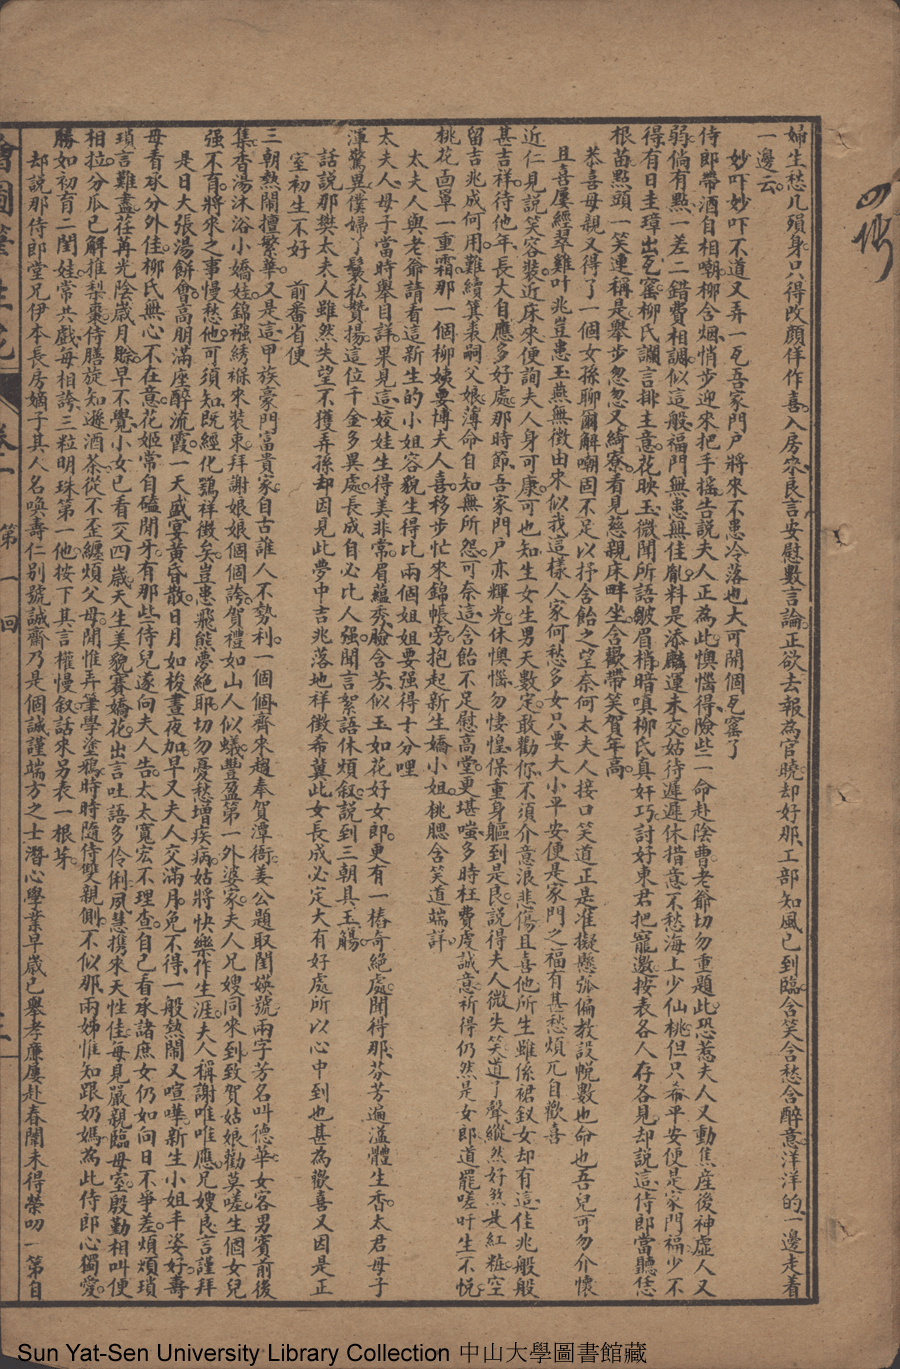 婦生愁几殞身只得改顏佯作喜入房來良言安慰數言論正欲去報為官曉却好那工部知風已到臨含笑含愁含醉意洋洋的一邊走着
一邊云
妙吓妙吓不道又弄一瓦吾家門戶將來不患冷落也大可開個瓦窰了
侍郎帶酒自相嘲柳含烟悄步迎來把手搖告說夫人正為此懊惱得險些一命赴陰曹老爺切勿重題此恐惹夫人又動焦産後神虛人又
弱倘有點一差二錯費相調似這般福門無患無佳胤料是添麟運未交姑待遲遲休措意不愁海上少仙桃但只希平安便是家門福少不
得有日主璋出瓦窰柳氏讕言排主意花映玉微聞所語皺眉梢暗嗔柳氏真奸巧討好東君把寵邀按表各人存各見却說這侍郎當聽恁
根苗點頭一笑連稱是舉步忽忽又綺寮看見慈親床畔坐含歡帶笑賀年高
恭喜母親又得了一個女孫聊爾解嘲固不足以抒含飴之望奈何太夫人接口笑道正是准擬懸弧偏教設帨數也命也吾兒可勿介懷
且喜屢經翠雞叶兆豈患玉燕無徵由來似我這樣人家何愁多女只要大小平安便是家門之福有甚愁煩兀自歡喜
近仁見說笑容裝近床來便詢夫人身可康可也知生女生男天數定敢勸你不須介意浪悲傷且喜他所生雖係裙釵女却有這佳兆般般
甚吉祥待他年長大自應多好處那時節吾家門戶亦輝光休懊惱勿悽惶保重身軀到是良說得夫人微失笑道了聲縱然好煞是紅粧空
留吉兆成何用難續箕裘嗣父娘薄命自知無所怨可奈這含飴不足慰高堂更堪嗤多時枉費虔誠意祈得仍然是女郎道罷嗟吁生不悅
桃花面單一重霜那一個柳姨要博夫人喜移步忙來錦帳旁抱起新生嬌小姐桃腮含笑道端詳
太夫人與老爺請看這新生的小姐容貌生得比兩個姐姐要强得十分哩
太夫人母子當時舉自詳果見這姣娃生得美非常眉蘊秀臉含芳似玉如花好女郎更有一樁奇絕處聞得那芬芳遍溢體生香太君母子
渾驚異僕婦丫鬟私贊揚這位千金多異處長成自必比人强閒言絮語休煩叙說到三朝具玉觴
話說那樊太夫人雖然失望不獲弄孫却因見此夢中吉兆落地祥徵希冀此女長成必定大有好處所以心中到也甚為歡喜又因是正
室初生不好前番省便
三朝熱鬧擅繁華又是這甲族豪門富貴家自古誰人不勢利一個個齊來趨奉賀潭衙姜公題取閨媖號兩字芳名叫德華女客男賓前後
集香湯沐浴小嬌娃錦襁綉褓來裝束拜謝娘娘個個誇賀禮如山人似蟻豐盈第一外婆家夫人兄嫂同來到致賀姑娘勸莫嗟生個女兒
强不育將來之事慢愁他可須知既經化鶚祥徵矣豈患飛熊夢絕耶切勿憂愁增疾病姑將快樂作生涯夫人稱謝唯唯應兄嫂良言謹拜
是日大張湯餅會高朋滿座醉流霞一天盛宴黃昏散日月如梭晝夜加早又夫人交滿月免不得一般熱鬧又喧嘩新生小姐丰姿好壽
母看承分外佳柳氏無心不在意花姬常自磕閒牙有那些侍兒遂向夫人告太太寬宏不理查自己看承諸庶女仍如向日不爭差煩煩瑣
瑣言難盡荏苒光陰歲月賒早不覺小女已看交四歲天生美貌賽嬌花出言吐語多伶俐夙慧携來天性佳每見嚴親臨母室殷勤相叫便
相拉分瓜已解推梨棗侍膳旋知遜酒茶從不歪纏煩父母閒惟弄筆學塗鴉時時隨侍雙親側不似那兩姊惟知跟奶媽為此侍郎心獨愛
勝如初育二閨娃常共戲每相誇三粒明珠第一他按下其言權慢叙話來另表一根芽
却說那侍郎堂兄伊本長房嫡子其人名喚壽仁别號誠齋乃是個誠謹端方之士潛心學業早歲已舉孝廉屢赴春闈未得榮叨一第自
繪圖筆生花 卷二 第一回 三
Sun Yat-Sen University Library Collection 中山大學圖書館藏